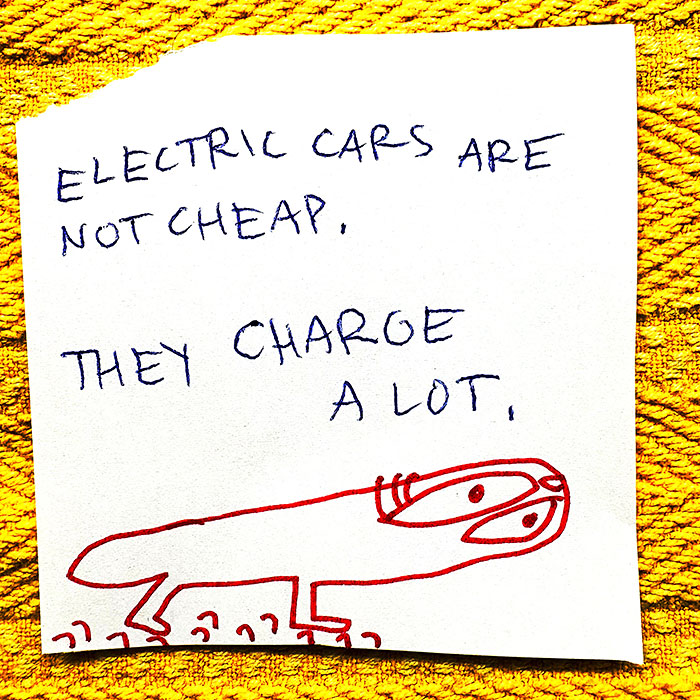 ELECTRIC CARS ARE
NOT CHEAP.
THEY CHARGE
A LOT.